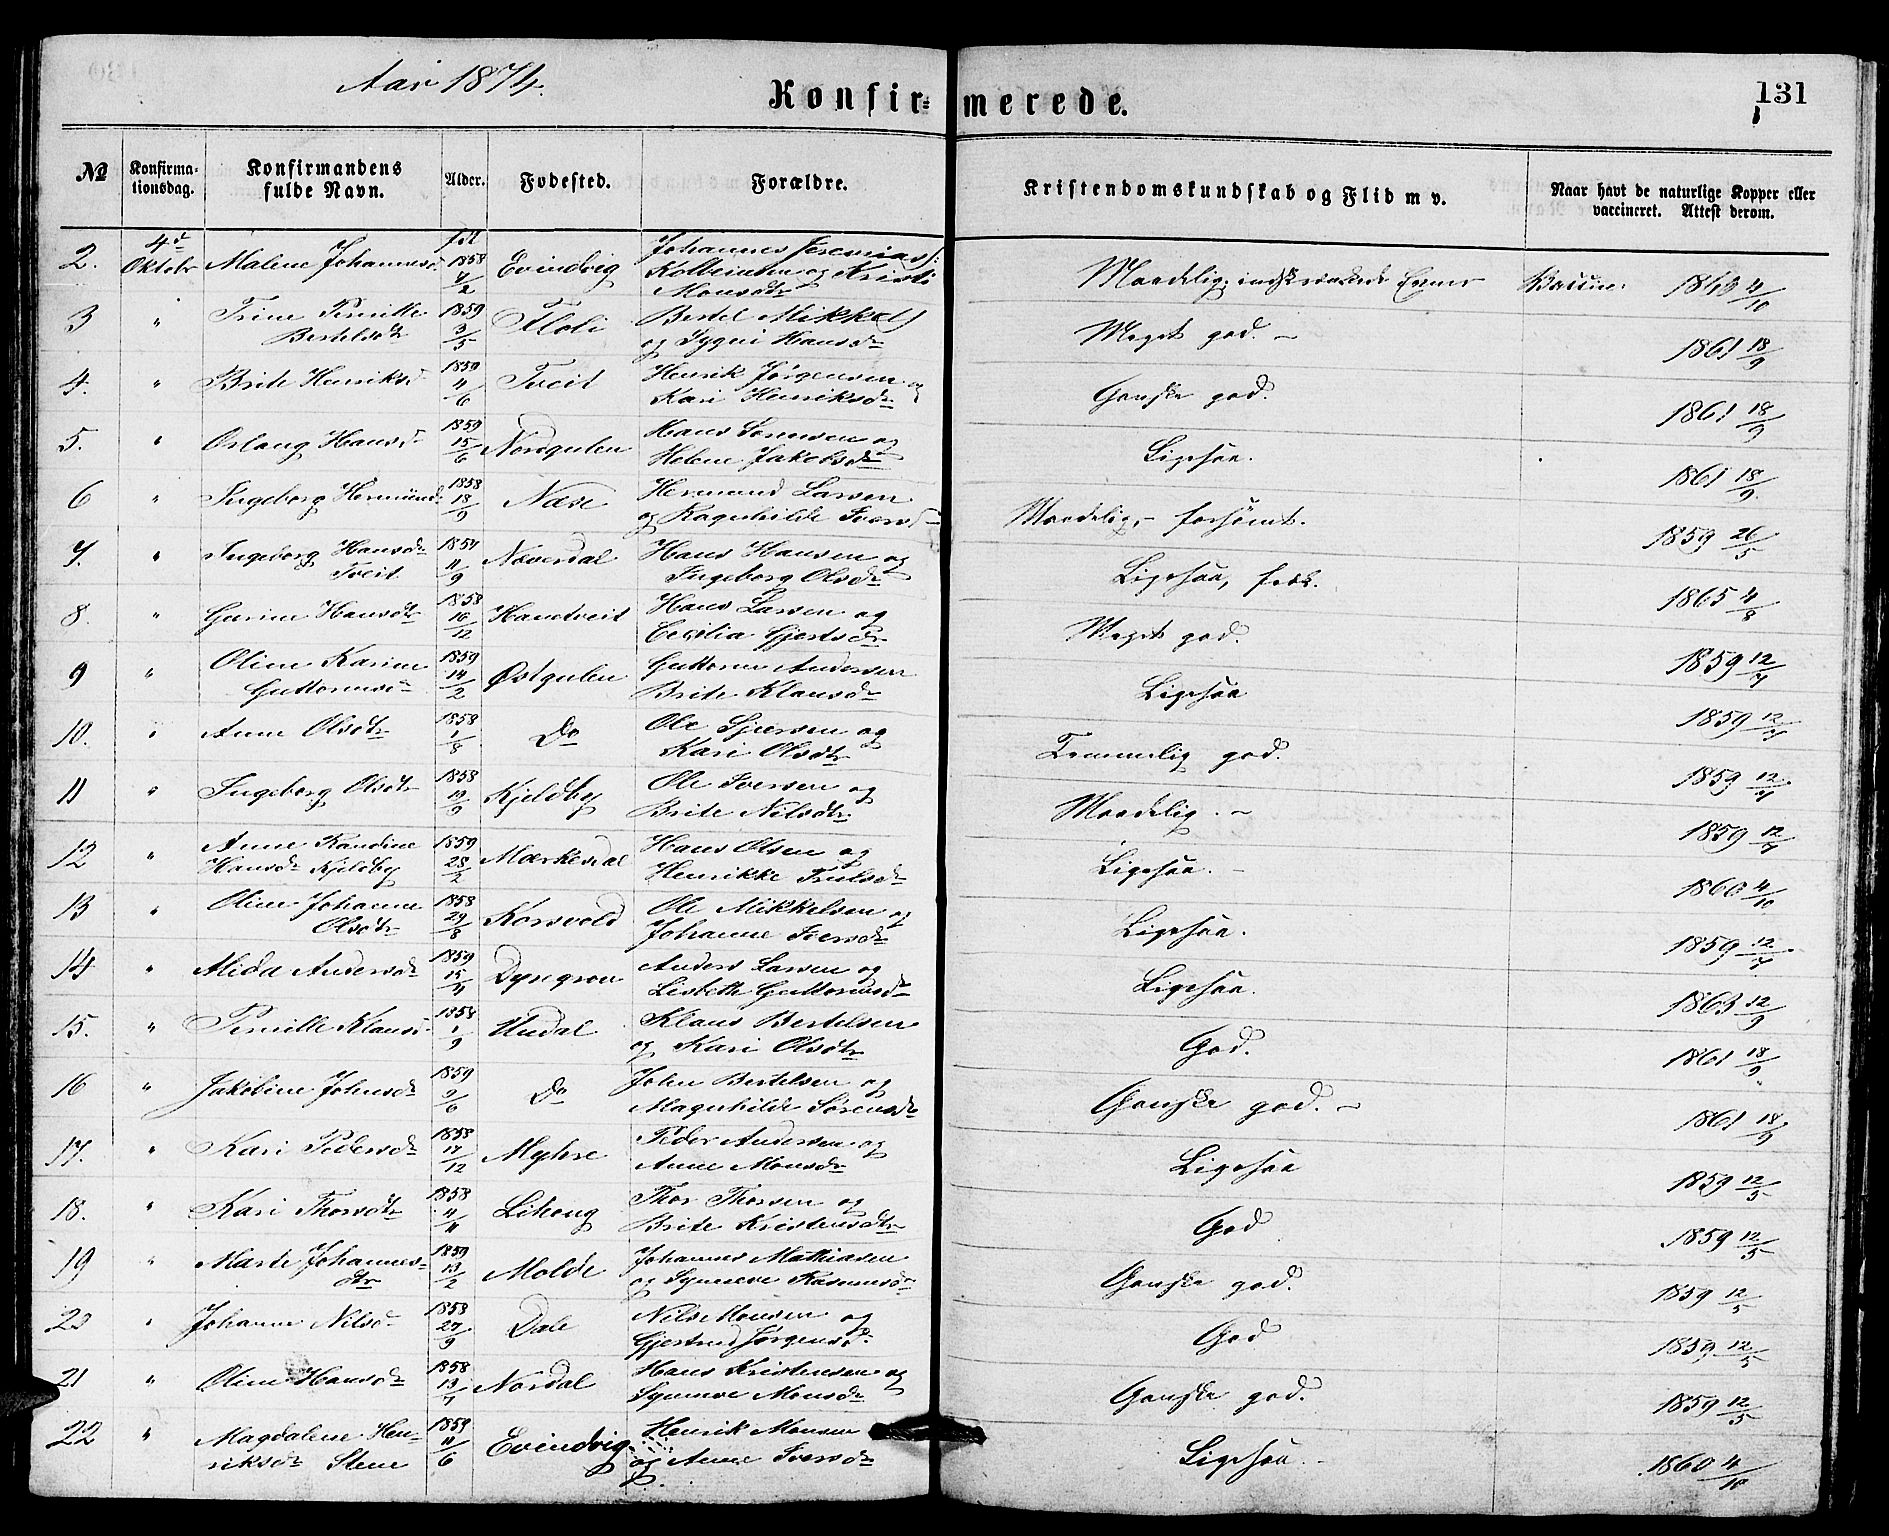 Aar 1874.
Konfir=merede.
131
№ Konfirma-tionsdag. Konfirmandens fulde Navn. Alder. Fødested. Forældre. Kristendomskundskab og Flid m v. Naar havt de naturlige Kopper eller vaccineret. Attest derom.
2. 4d Oktobr Malene Johannesd. fød 1858 7/2 Evindvig Johannes Jeremias. Kolbeinsen og Kristi Monsdtr Maadelig, indskrænkede Evner Vaccine. 1863 4/10
3 " Trine Pernike Bertelsdtr 1859 3/5 Floli Bertel Mikkels og Sygni Hansdr Meget god. 1861 18/9
4. " Brite Henriksd 1859 4/6 Tveit Henrik Jørgensen og Kari Henriksdr Ganske god. 1861 18/9
5. " Oslaug Hansd 1859 15/6 Nordgulen Hans Sørensen og Helene Jakobsdr Ligesaa. 1861 18/9
6 " Ingeborg Hermund 1858 18/9 Næse Hermund Larsen og Ragnhilde Iversd Maadelig, - forsømt. 1859 26/5
7. " Ingeborg Hansdr Tveit 1857 11/9 Nøverdal Hans Hansen og Ingeborg Olsdr Ligesaa, 1865 4/8
8. " Gurine Hansdtr 1858 16/12 Hantveit Hans Larsen og Cecilia Gjertsdr Meget god. 1859 12/7
9 " Oline Karine Guttormsd 1859 14/2 Østgulen Guttorm Andersen Brite Klausdr Ligesaa 1859 12/7
10. " Anne Olsdtr 1858 1/8 Do Ole Sjursen og Kari Olsdtr Temmelig god. 1859 12/7
11 " Ingeborg Olsdtr 1858 19/9 Kjeldby Ole Iversen og Brite Nilsdtr Maadelig. 1859 12/7
12 " Anne Randine Hansdr Kjeldby 1859 28/2 Mærkesdal Hans Olsen og Henrikke Trulsdr Ligesaa. 1860 4/10
13 " Oline Johanne Olsdtr 1858 29/8 Korsvold Ole Mikkelsen og Johanne Iversdr Ligesaa. 1859 12/7
14 " Alida Andersdr 1859 15/4 Dyregrov Anders Larsen og Lisbeth Guttormsdr Ligesaa. 1863 12/9
15. " Pernille Klausd 1858 1/9 Hudal Klaus Bertelsen og Kari Olsdtr God. 1861 18/9
16 " Jakobine Johnsdr 1859 9/6 Do John Bertelsen og Magnhilde Sørensdr Ganske god. 1861 18/9
17. " Kari Pedersdr 1858 17/12 Myhre Peder Andersen og Anne Monsdr Ligesaa 1859 12/5
18. " Kari Thorsdtr 1858 4/11 Lihoug Thor Thorsen og Brite Kristensdtr God 1859 12/5
19 " Marte Johannes-dtr 1859 13/2 Molde Johannes Mathiasen og Synneve Rasmusdr Ganske god. 1859 12/5
20 " Johanne Nilsd 1858 27/9 Dale Nils Monsen og Gjertrud Jørgensd. God 1859 12/5
21 " Oline Hansdr 1858 13/7 Nordal Hans Kristensen og Synneve Monsdr Ganske god. 1859 12/5
22 " Magdalene Hen-riksdr Stene 1859 11/6 Evindvig. Henrik Monsen og Anne Iversdr Ligesaa. 1860 4/10